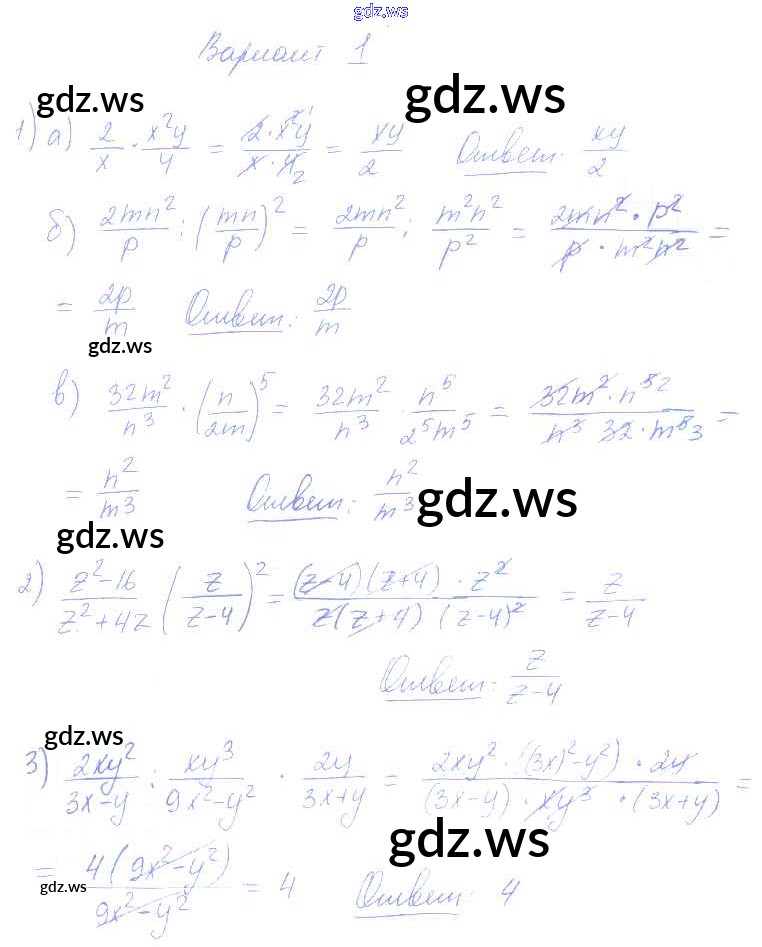 gdz.ws
Вариант 1
gdz.ws gdz.ws
1) а) 2/x · x²y/4 = 2·x²y/x·4 = xy/2 Ответ: xy/2
б) 2mn²/p : (mn/p)² = 2mn²/p : m²n²/p² = 2mn²·p²/p·m²n² =
= 2p/m Ответ: 2p/m
gdz.ws
в) 32m²/n³ · (n/2m)⁵ = 32m²/n³ · n⁵/2⁵m⁵ = 32m²·n⁵/n³ 32·m⁵ =
= n²/m³ Ответ: n²/m³
gdz.ws gdz.ws
2) z²-16/z²+4z (z/z-4)² = (z-4)(z+4)·z²/z(z+4)(z-4)² = z/z-4
Ответ: z/z-4
gdz.ws
3) 2xy²/3x-y : xy³/9x²-y² · 2y/3x+y = 2xy²·((3x)²-y²)·2y/(3x-y)·xy³·(3x+y) =
gdz.ws
= 4(9x²-y²)/9x²-y² = 4 Ответ: 4
gdz.ws